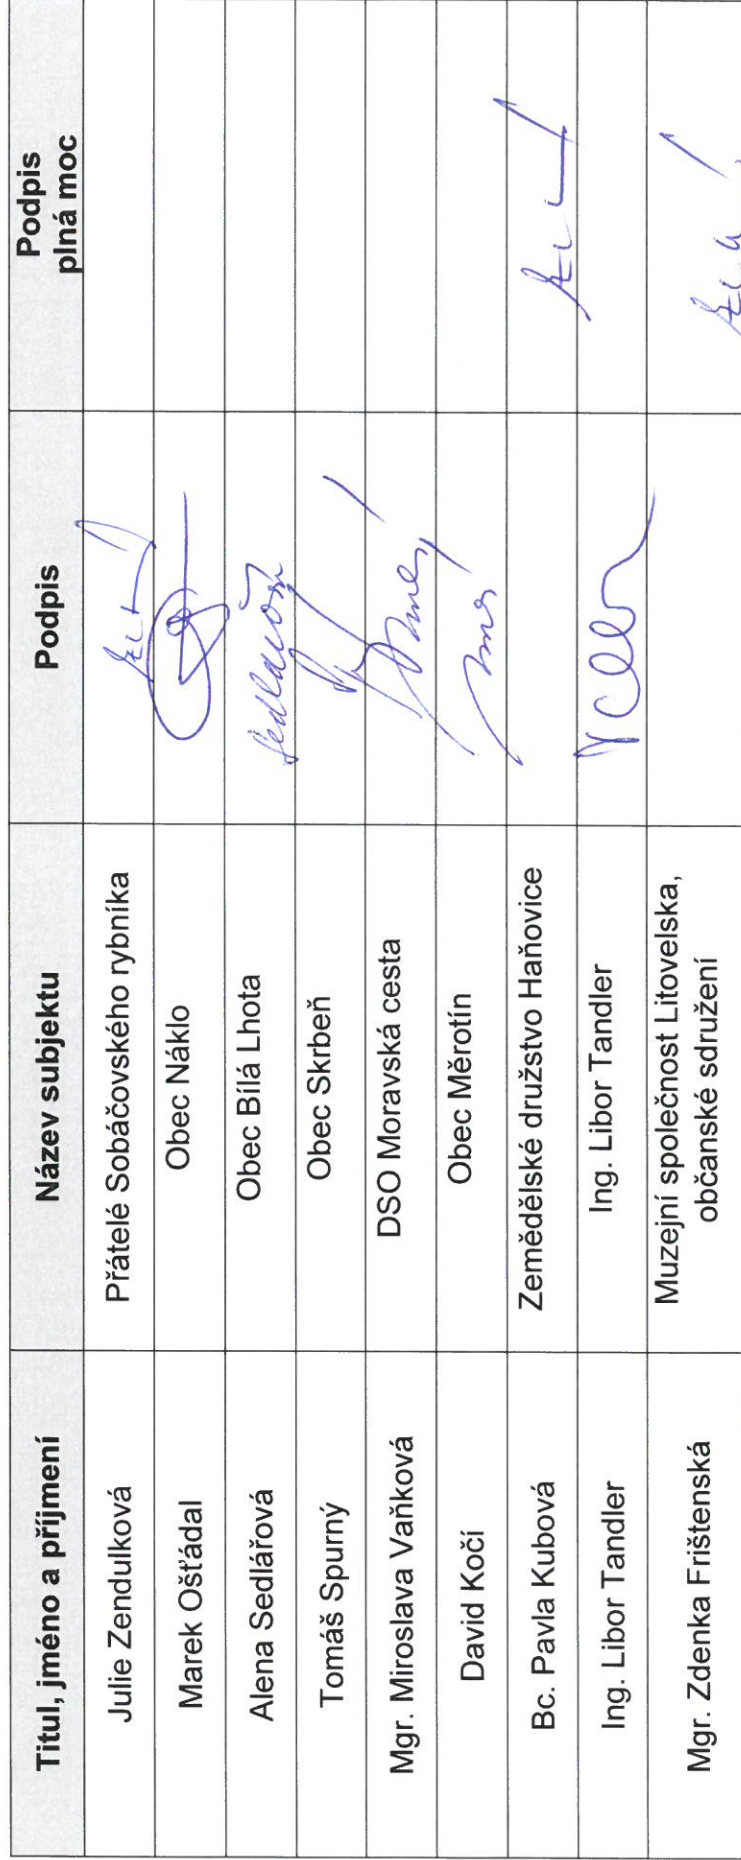 Titul, jméno a příjmení Název subjektu Podpis Podpis
plná moc
Julie Zendulková Přátelé Sobáčovského rybníka
Marek Ošťádal Obec Náklo
Alena Sedlářová Obec Bílá Lhota Sedlářová
Tomáš Spurný Obec Skrbeň
Mgr. Miroslava Vaňková DSO Moravská cesta
David Kočí Obec Měrotín
Bc. Pavla Kubová Zemědělské družstvo Haňovice
Ing. Libor Tandler Ing. Libor Tandler
Mgr. Zdenka Frištenská Muzejní společnost Litovelska,
občanské sdružení